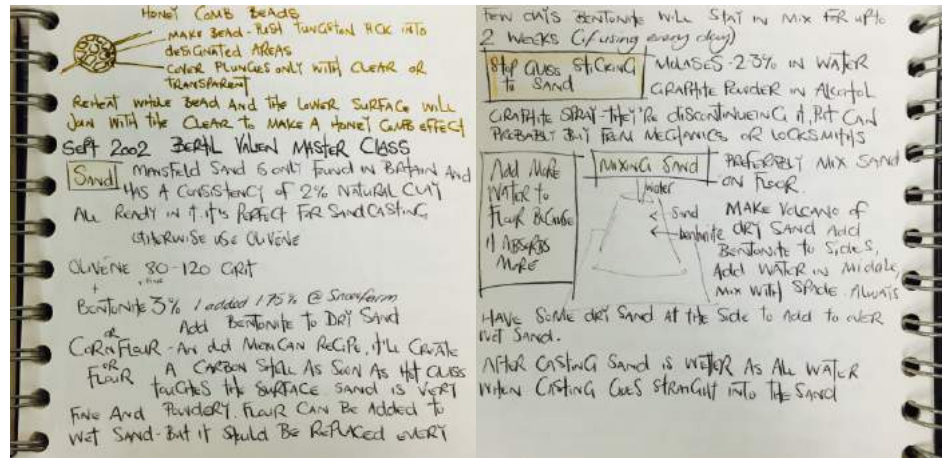 HONEY COMB BEADS
MAKE BEAD - PUSH TUNGSTION PICK INTO
DESIGNATED AREAS
COVER PLUNGES ONLY WITH CLEAR OR
TRANSPARENT
REPEAT WHOLE BEAD AND THE LOWER SURFACE WILL
JOIN WITH THE CLEAR TO MAKE A HONEY COMB EFFECT
SEPT 2002 BERTIL VALIEN MASTER CLASS
SAND MANSFIELD SAND IS ONLY FOUND IN BRITAIN AND
HAS A CONSISTENCY OF 2% NATURAL CLAY
ALL READY IN IT. IT'S PERFECT FOR SANDCASTING,
OTHERWISE USE OLIVENE
OLIVENE 80-120 GRIT
+
BENTONITE 3% I added 1.75% @
ADD BENTONITE TO DRY SAND
OR
CORNFLOUR - AN OLD MEXICAN RECIPE, IT'LL CREATE
OR
FLOUR A CARBON SHELL AS SOON AS HOT GLASS
TOUCHES THE SURFACE. SAND IS VERY
FINE AND POWDERY. FLOUR CAN BE ADDED TO
WET SAND - BUT IT SHOULD BE REPLACED EVERY
FEW DAYS BENTONITE WILL STAY IN MIX FOR UP TO
2 WEEKS (if using every day)
STOP GLASS STICKING
TO SAND
MOLASES - 2-3% IN WATER
GRAPHITE POWDER IN ALCOHOL
GRAPHITE SPRAY - THEY'RE DISCONTINUEING IT, BUT CAN
PROBABLY BUY FROM MECHANICS OR LOCKSMITHS
ADD MORE
WATER TO
FLOUR BECAUSE
IT ABSORBS
MORE
MIXING SAND
water
Sand
bentonite
PREFERABLY MIX SAND
ON FLOOR.
MAKE VOLCANO OF
DRY SAND ADD
BENTONITE TO SIDES,
ADD WATER IN MIDDLE,
MIX WITH SPADE. ALWAYS
HAVE SOME DRY SAND AT THE SIDE TO ADD TO OVER
WET SAND.
AFTER CASTING SAND IS WETTER AS ALL WATER
WHEN CASTING GOES STRAIGHT INTO THE SAND